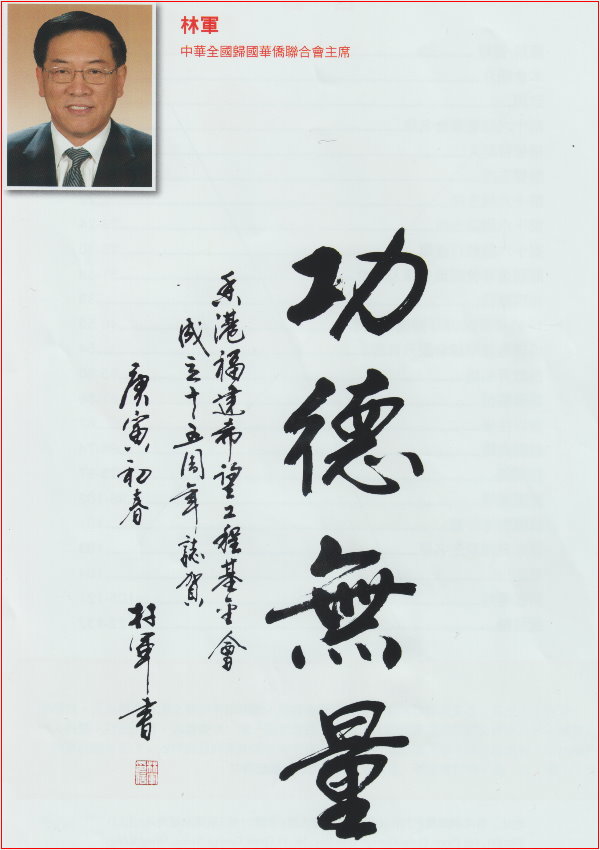 林軍
中華全國歸國華僑聯合會主席
功德無量
香港福建希望工程基金會
成立十五周年誌賀
庚寅初春
林軍書